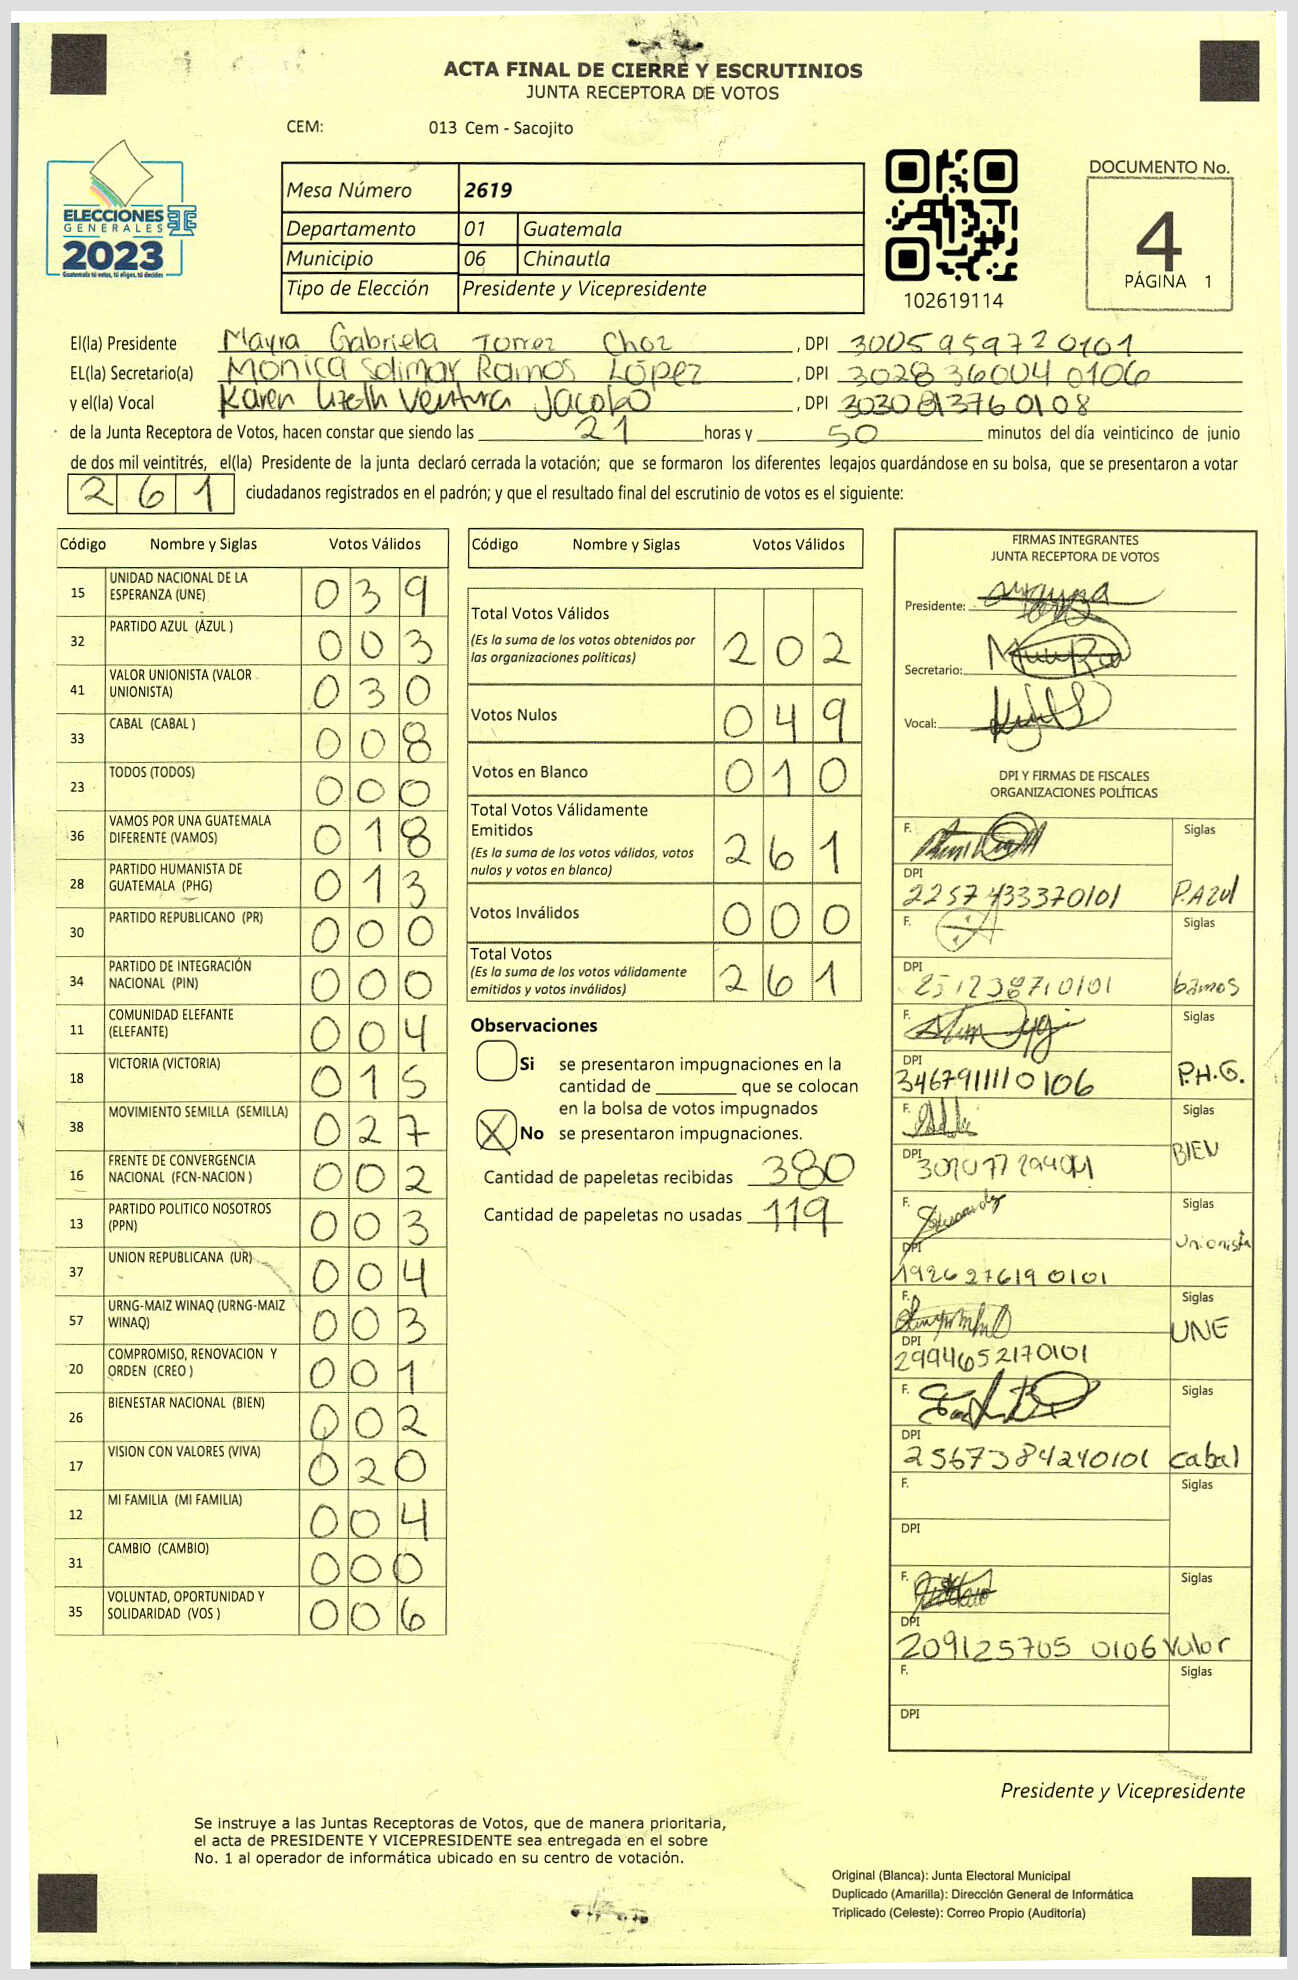 ACTA FINAL DE CIERRE Y ESCRUTINIOS
JUNTA RECEPTORA DE VOTOS
CEM: 013 Cem - Sacojito
ELECCIONES
GENERALES
2023
Guatemala tú votas, tú eliges, tú decides
Mesa Número 2619
Departamento 01 Guatemala
Municipio 06 Chinautla
Tipo de Elección Presidente y Vicepresidente
102619114
DOCUMENTO No.
4
PÁGINA 1
El(la) Presidente Mayra Gabriela Torrez Choz , DPI 3005959720101
EL(la) Secretario(a) Monica Solimar Ramos López , DPI 3028360040106
y el(la) Vocal Karen Lizeth Ventura Jacobo , DPI 3030813760108
de la Junta Receptora de Votos, hacen constar que siendo las 21 horas y 50 minutos del día veinticinco de junio
de dos mil veintitrés, el(la) Presidente de la junta declaró cerrada la votación; que se formaron los diferentes legajos guardándose en su bolsa, que se presentaron a votar
261 ciudadanos registrados en el padrón; y que el resultado final del escrutinio de votos es el siguiente:
Código Nombre y Siglas Votos Válidos
15 UNIDAD NACIONAL DE LA ESPERANZA (UNE) 039
32 PARTIDO AZUL (ÁZUL ) 003
41 VALOR UNIONISTA (VALOR UNIONISTA) 030
33 CABAL (CABAL ) 008
23 TODOS (TODOS) 000
36 VAMOS POR UNA GUATEMALA DIFERENTE (VAMOS) 018
28 PARTIDO HUMANISTA DE GUATEMALA (PHG) 013
30 PARTIDO REPUBLICANO (PR) 000
34 PARTIDO DE INTEGRACIÓN NACIONAL (PIN) 000
11 COMUNIDAD ELEFANTE (ELEFANTE) 004
18 VICTORIA (VICTORIA) 015
38 MOVIMIENTO SEMILLA (SEMILLA) 027
16 FRENTE DE CONVERGENCIA NACIONAL (FCN-NACION ) 002
13 PARTIDO POLITICO NOSOTROS (PPN) 003
37 UNION REPUBLICANA (UR) 004
57 URNG-MAIZ WINAQ (URNG-MAIZ WINAQ) 003
20 COMPROMISO, RENOVACION Y ORDEN (CREO ) 001
26 BIENESTAR NACIONAL (BIEN) 002
17 VISION CON VALORES (VIVA) 020
12 MI FAMILIA (MI FAMILIA) 004
31 CAMBIO (CAMBIO) 000
35 VOLUNTAD, OPORTUNIDAD Y SOLIDARIDAD (VOS ) 006
Código Nombre y Siglas Votos Válidos
Total Votos Válidos 202
(Es la suma de los votos obtenidos por
las organizaciones políticas)
Votos Nulos 049
Votos en Blanco 010
Total Votos Válidamente
Emitidos 261
(Es la suma de los votos válidos, votos
nulos y votos en blanco)
Votos Inválidos 000
Total Votos 261
(Es la suma de los votos válidamente
emitidos y votos inválidos)
Observaciones
Si se presentaron impugnaciones en la
cantidad de ________ que se colocan
en la bolsa de votos impugnados
X No se presentaron impugnaciones.
Cantidad de papeletas recibidas 380
Cantidad de papeletas no usadas 119
FIRMAS INTEGRANTES
JUNTA RECEPTORA DE VOTOS
Presidente:
Secretario:
Vocal:
DPI Y FIRMAS DE FISCALES
ORGANIZACIONES POLÍTICAS
F. Siglas
DPI 2257433370101 P.Azul
F. Siglas
DPI bamos
F. Siglas
DPI 3467911110106 P.H.G.
F. Siglas
DPI BIEN
F. Siglas
DPI 1926276190101 Unionista
F. Siglas
DPI 2994652170101 UNE
F. Siglas
DPI 2567384240101 cabal
F. Siglas
DPI
F. Siglas
DPI 209125705 0106 Valor
F. Siglas
DPI
Presidente y Vicepresidente
Se instruye a las Juntas Receptoras de Votos, que de manera prioritaria,
el acta de PRESIDENTE Y VICEPRESIDENTE sea entregada en el sobre
No. 1 al operador de informática ubicado en su centro de votación.
Original (Blanca): Junta Electoral Municipal
Duplicado (Amarilla): Dirección General de Informática
Triplicado (Celeste): Correo Propio (Auditoría)